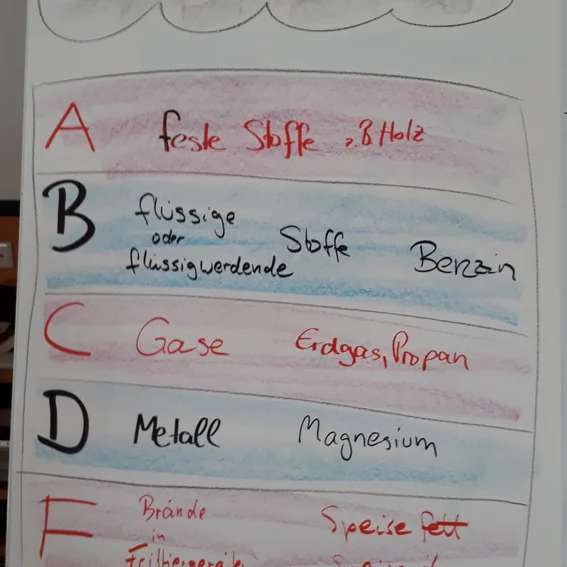 A feste Stoffe z.B Holz
B flüssige
oder
flüssigwerdende Stoffe Benzin
C Gase Erdgas, Propan
D Metall Magnesium
F Brände Speise fett
in